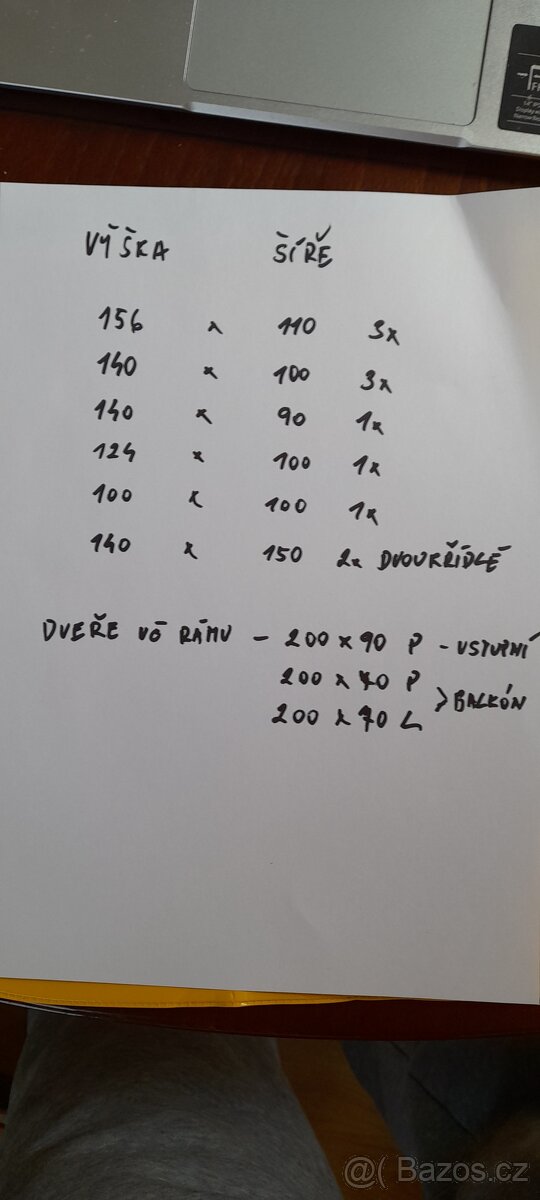 VÝŠKA ŠÍŘE
156 x 110 3x
140 x 100 3x
140 x 90 1x
124 x 100 1x
100 x 100 1x
140 x 150 2x DVOUKŘÍDLÉ
DVEŘE VČ RÁMU - 200 x 90 P - VSTUPNÍ
200 x 70 P
200 x 70 L > BALKÓN
@( Bazos.cz